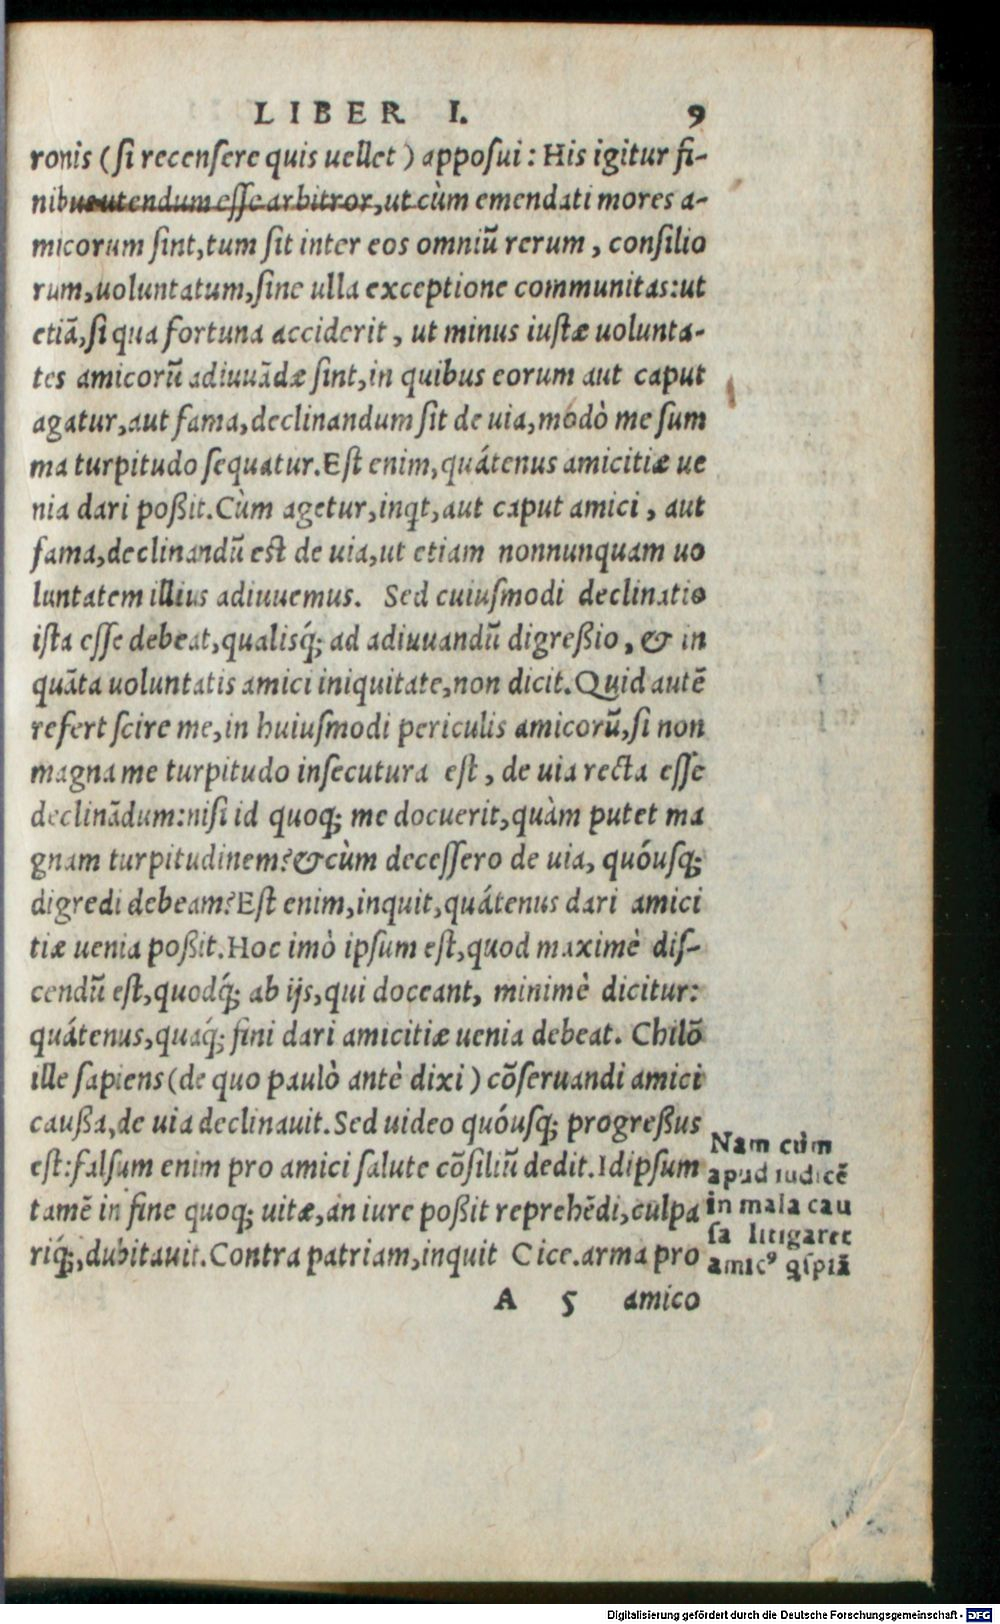 LIBER I. 9
ronis (si recensere quis uellet) apposui: His igitur fi-
nibus utendum esse arbitror, ut cùm emendati mores a-
micorum sint, tum sit inter eos omniũ rerum, consilio
rum, uoluntatum, sine ulla exceptione communitas: ut
etiã, si qua fortuna acciderit, ut minus iustæ uolunta-
tes amicorũ adiuuãdæ sint, in quibus eorum aut caput
agatur, aut fama, declinandum sit de uia, modò me sum
ma turpitudo sequatur. Est enim, quátenus amicitiæ ue
nia dari poßit. Cùm agetur, inqt, aut caput amici, aut
fama, declinandũ est de uia, ut etiam nonnunquam uo
luntatem illius adiuuemus. Sed cuiusmodi declinatio
ista esse debeat, qualisq́; ad adiuuandũ digreßio, & in
quãta uoluntatis amici iniquitate, non dicit. Quid autẽ
refert scire me, in huiusmodi periculis amicorũ, si non
magna me turpitudo insecutura est, de uia recta esse
declinãdum: nisi id quoq; me docuerit, quàm putet ma
gnam turpitudinem? & cùm decessero de uia, quóusq;
digredi debeam? Est enim, inquit, quátenus dari amici
tiæ uenia poßit. Hoc imò ipsum est, quod maximè dis-
cendũ est, quodq́; ab ijs, qui doceant, minimè dicitur:
quátenus, quaq́; fini dari amicitiæ uenia debeat. Chilõ
ille sapiens (de quo paulò antè dixi) cõseruandi amici
caußa, de uia declinauit. Sed uideo quóusq; progreßus
est: falsum enim pro amici salute cõsiliũ dedit. Id ipsum
tamẽ in fine quoq; uitæ, an iure poßit reprehẽdi, culpa
riq́;, dubitauit. Contra patriam, inquit Cice. arma pro
A 5 amico
Nam cùm
apud iudicẽ
in mala cau
sa litigaret
amicꝰ qspiã
Digitalisierung gefördert durch die Deutsche Forschungsgemeinschaft - DFG